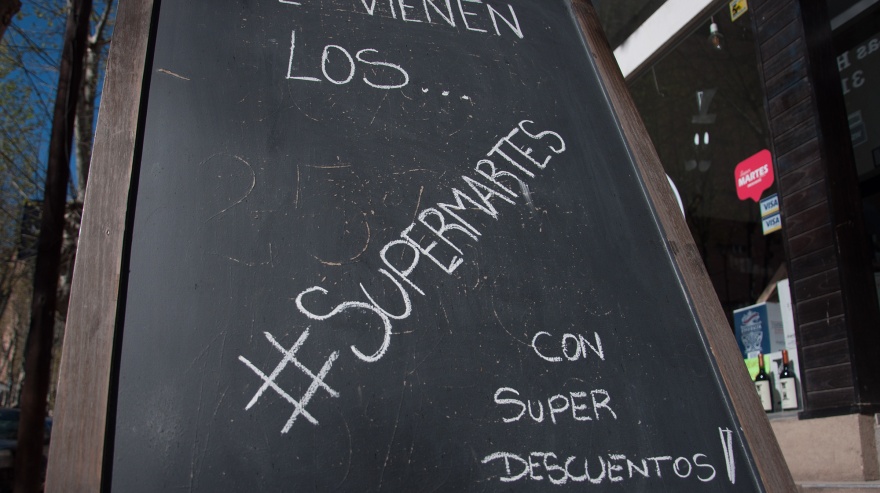 VIENEN
LOS...
#SUPERMARTES
CON
SUPER
DESCUENTOS!
MARTES
VISA
VISA